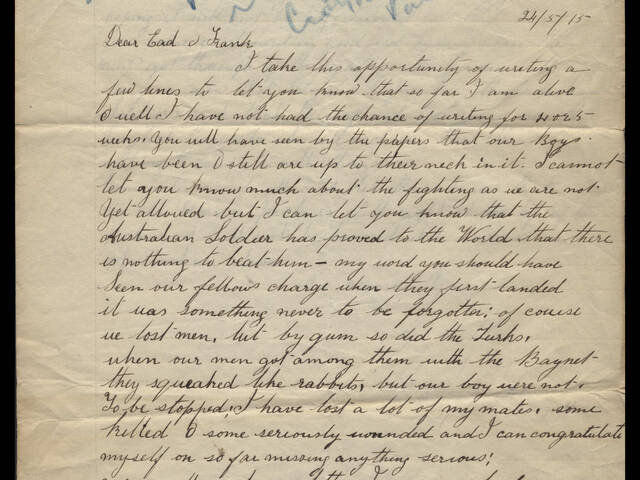 24/5/15
Dear Ead & Frank
I take this opportunity of writing a
few lines to let you know that so far I am alive
& well I have not had the chance of writing for 4 or 5
weeks. You will have seen by the papers that our Boys
have been & still are up to their neck in it. I cannot
let you know much about the fighting as we are not
Yet allowed but I can let you know that the
Australian Soldier has proved to the World that there
is nothing to beat him - my word you should have
Seen our fellows charge when they first landed
it was something never to be forgotten; of course
we lost men, but by gum so did the Turks.
when our men got among them with the Baynet
they squeaked like rabbits, but our boy were not
To be stopped. I have lost a lot of my mates. some
killed & some seriously wounded and I can congratulate
myself on so far missing anything serious!